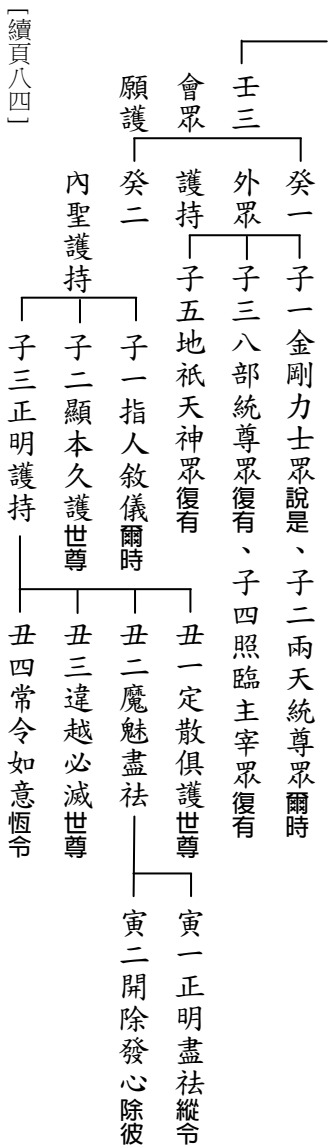 壬三
會眾
願護
癸一
外眾
護持
子一金剛力士眾說是、子二兩天統尊眾爾時
子三八部統尊眾復有、子四照臨主宰眾復有
子五地祇天神眾復有
癸二
內聖護持
子一指人敘儀爾時
子二顯本久護世尊
子三正明護持
丑一定散俱護世尊
丑二魔魅盡祛
寅一正明盡祛縱令
寅二開除發心除彼
丑三違越必滅世尊
丑四常令如意恆令
[續頁八四]